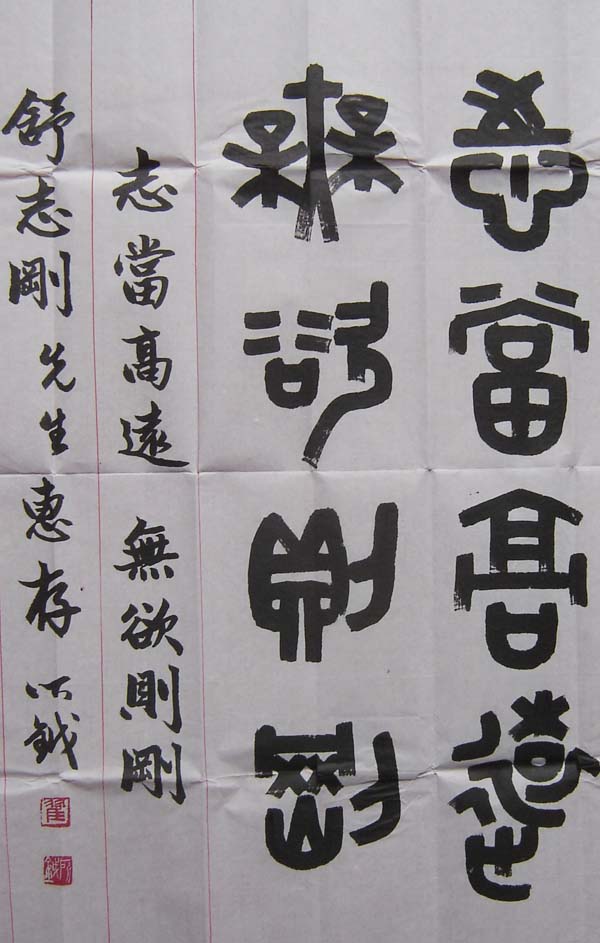 志當高遠
無欲則剛
志當高遠 無欲則剛
舒志剛先生惠存 以鉞